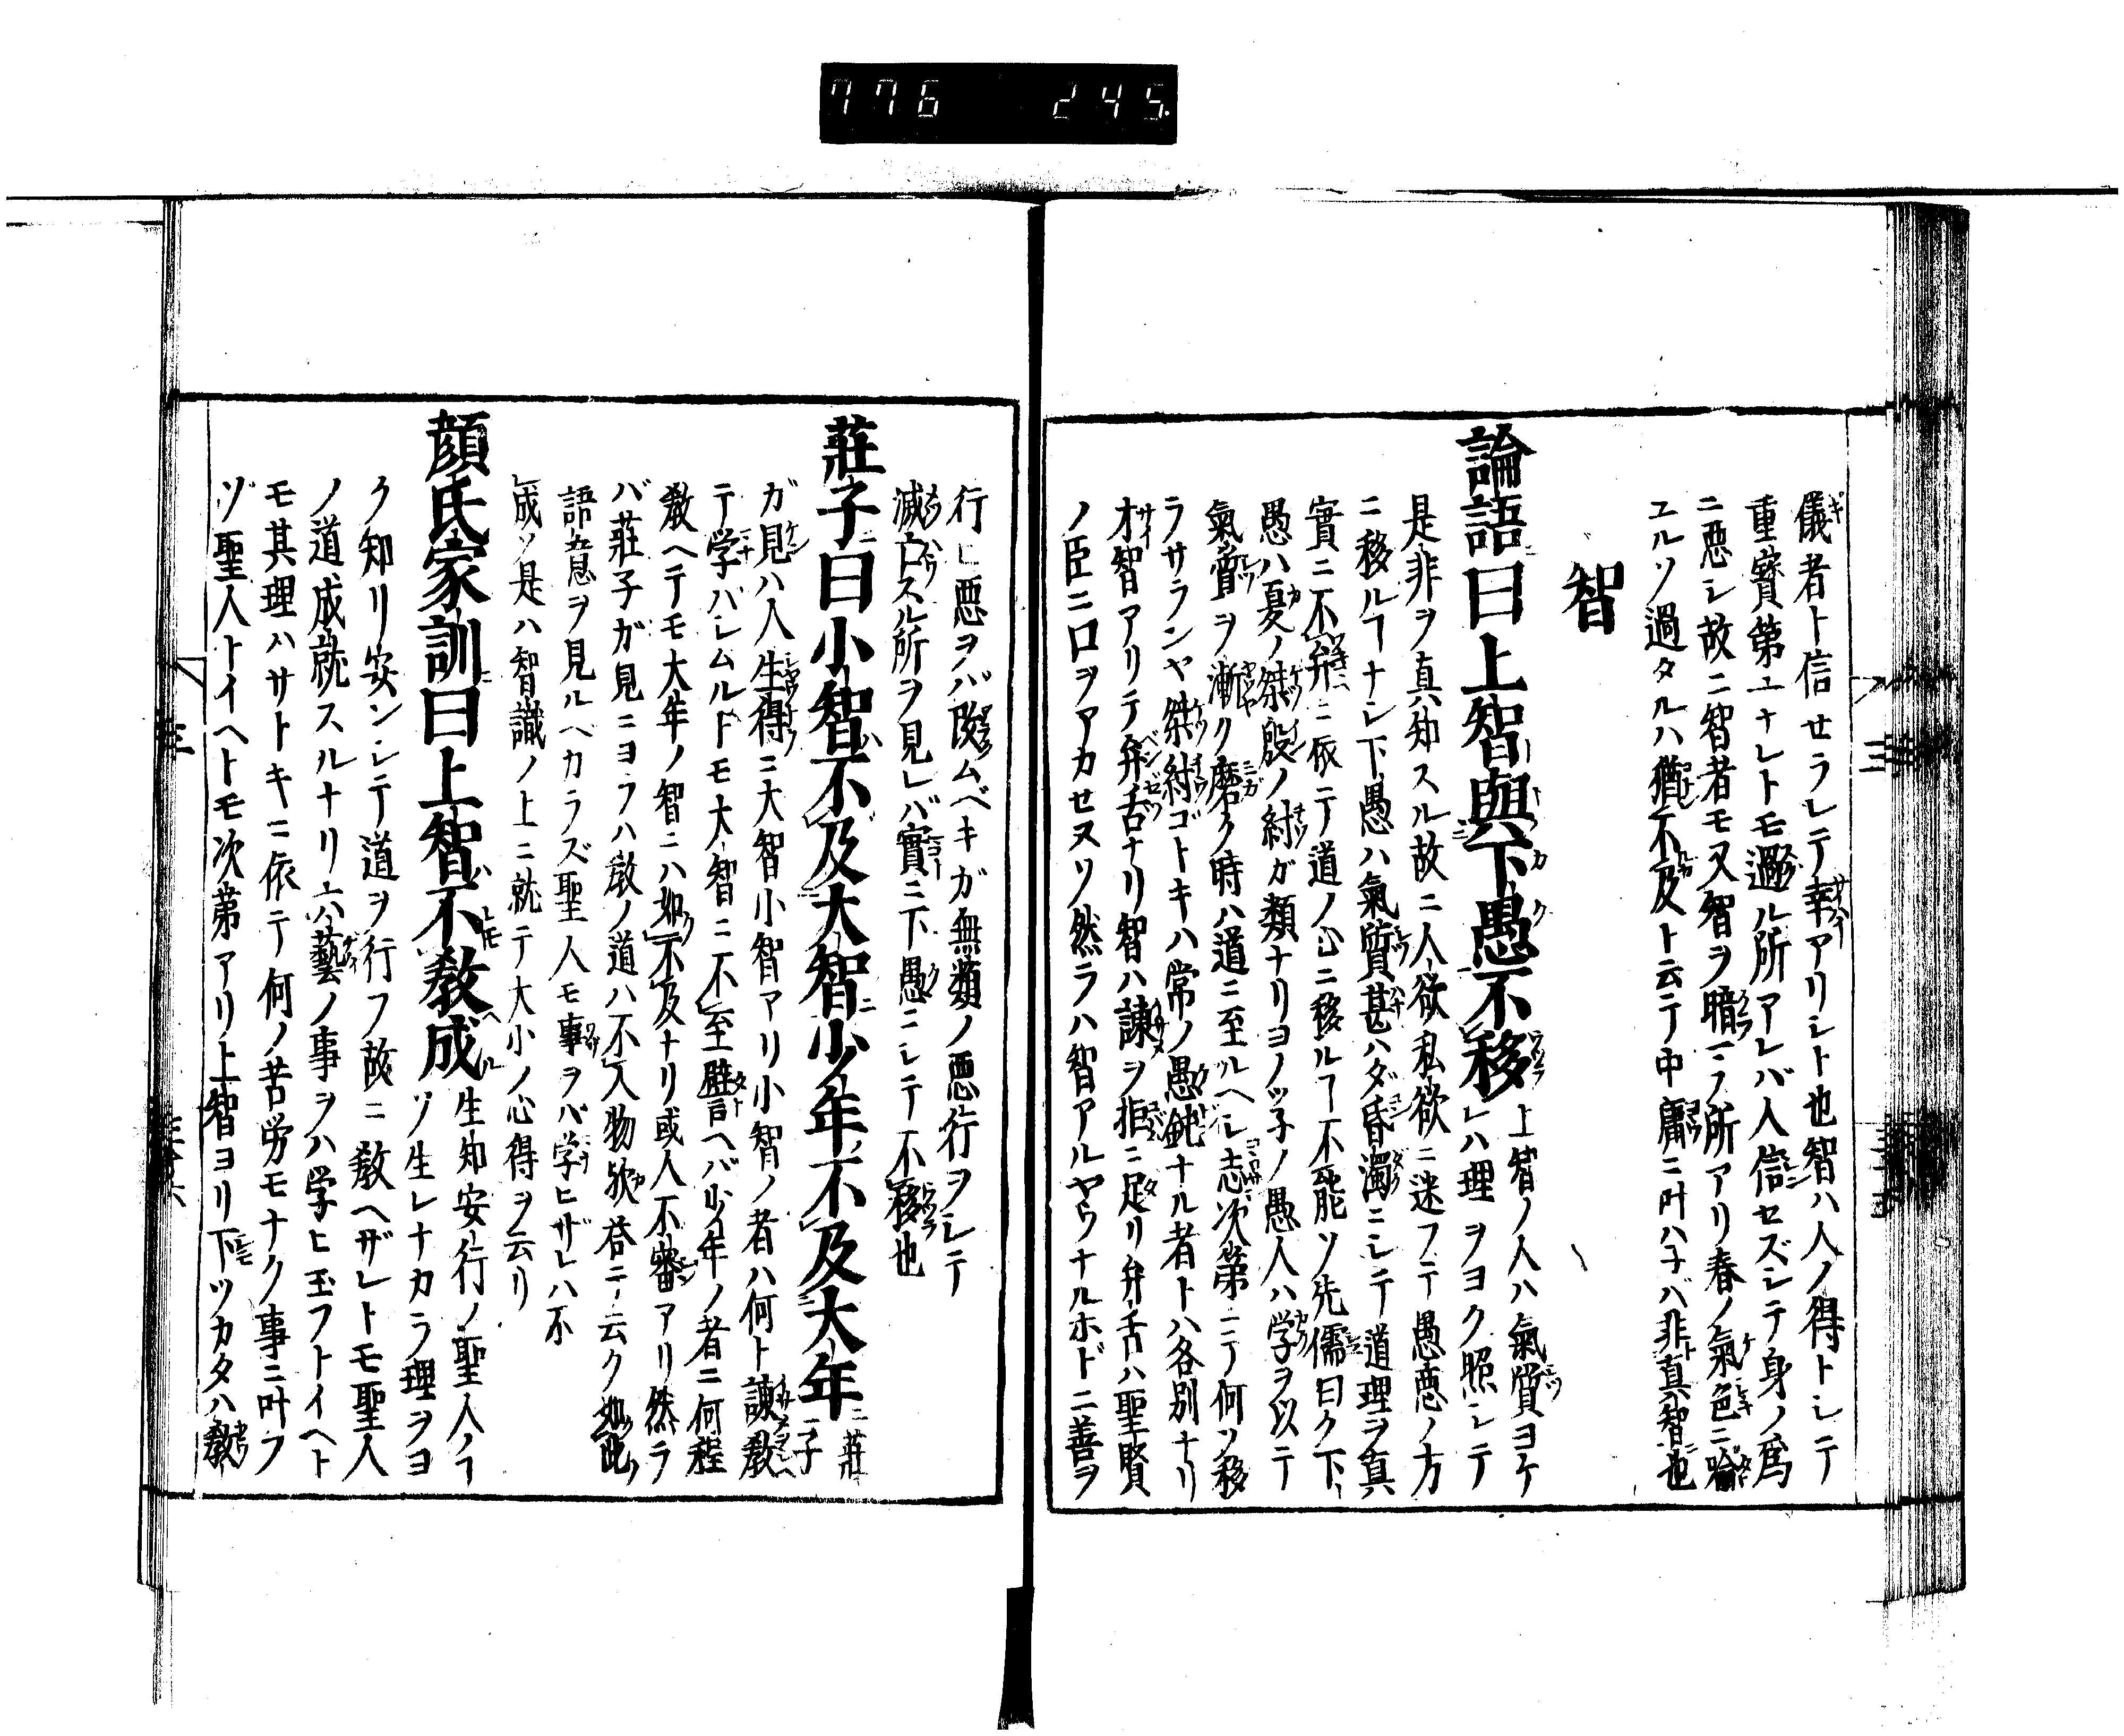 776 245.
儀者ト信セラレテ幸アリシト也智ハ人ノ得トシテ
重寳第一ナレトモ過ル所アレバ人信セズシテ身ノ爲
ニ悪シ故ニ智者モ又智ヲ暗一フ所アリ春ノ氣色ニ喩
ユルソ過タルハ猶不及ト云テ中庸ニ叶ハ子バ非真智也
智
論語曰上智與下愚不移
上智ノ人ハ氣質ヨケ
レハ理ヲヨク照シテ
是非ヲ真知スル故ニ人欲私欲ニ迷フテ愚悪ノ方
ニ移ルヿナシ下愚ハ氣質甚ハダ昏濁ニシテ道理ヲ真
實ニ不弁ニ依テ道ノ心ニ移ルヿ不能ソ先儒曰ク下
愚ハ夏ノ桀殷ノ紂ガ類ナリヨノツ子ノ愚人ハ学ヲ以テ
氣質ヲ漸ク磨ク時ハ道ニ至ルヘシ志次第ニテ何ソ移
ラサランヤ桀紂ゴトキハ常ノ愚鈍ナル者トハ各別ナリ
才智アリテ弁舌ナリ智ハ諌ヲ拒ニ足リ弁舌ハ聖賢
ノ臣ニ口ヲアカセヌソ然ラハ智アルヤウナルホドニ善ヲ
行ヒ悪ヲバ改ムベキガ無類ノ悪行ヲシテ
滅亡スル所ヲ見レバ實ニ下愚ニシテ不移也
莊子曰小智不及大智少年不及大年
莊
子
ガ見ハ人生得ニ大智小智アリ小智ノ者ハ何ト諌教
テ学ハシムルトモ大智ニ不至譬ヘバ少年ノ者ニ何程
教ヘテモ大年ノ智ニハ如不及ナリ或人不審アリ然ラ
バ莊子ガ見ニヨラハ教ノ道ハ不入物歟答ニ云ク如此
語意ヲ見ルベカラズ聖人モ事ヲバ学ヒザレハ不
成ソ是ハ智識ノ上ニ就テ大小ノ心得ヲ云リ
顔氏家訓曰上智不教成
生知安行ノ聖人ノヿ
ゾ生レナカラ理ヲヨ
ク知リ安ンシテ道ヲ行フ故ニ教ヘザレトモ聖人
ノ道成就スルナリ六藝ノ事ヲハ学ヒ玉フトイヘト
モ其理ハサトキニ依テ何ノ苦労モナク事ニ叶フ
ゾ聖人トイヘトモ次第アリ上智ヨリ下ツカタハ教